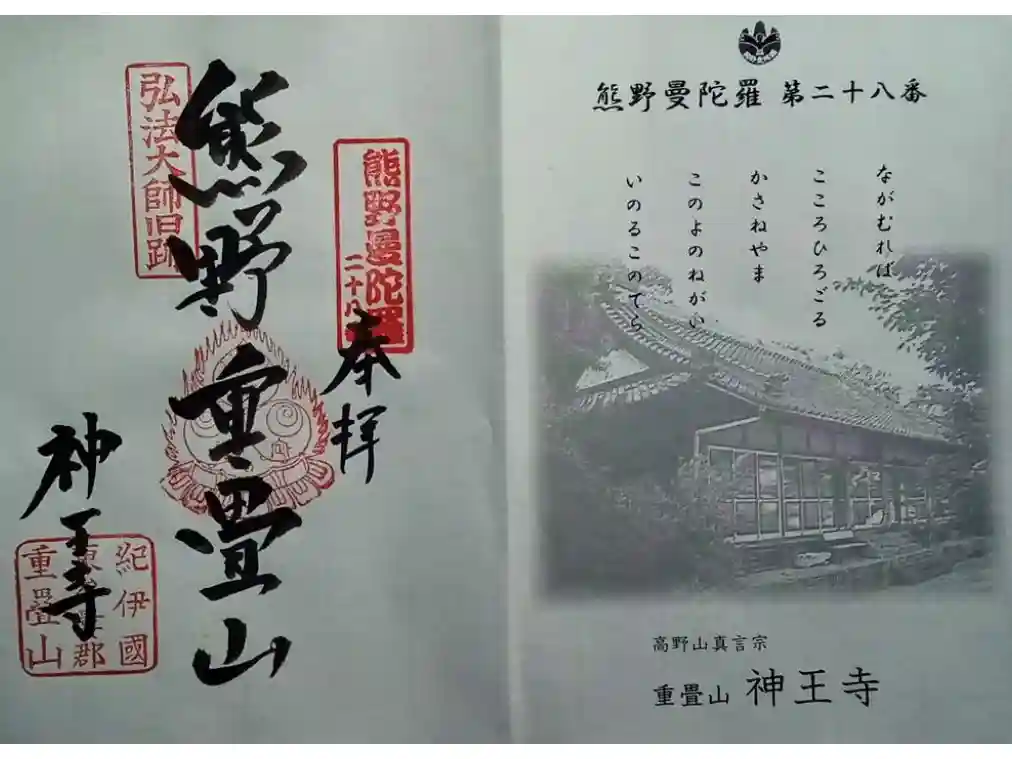 熊野曼陀羅 第二十八番
ながむれば
こころひろごる
かさねやま
このよのねがい
いのるこのてら
高野山真言宗
重畳山 神王寺
熊野曼陀羅
二十八
奉拝
熊野重畳山
弘法大師旧跡
神王寺
紀伊國
郡
重疊山